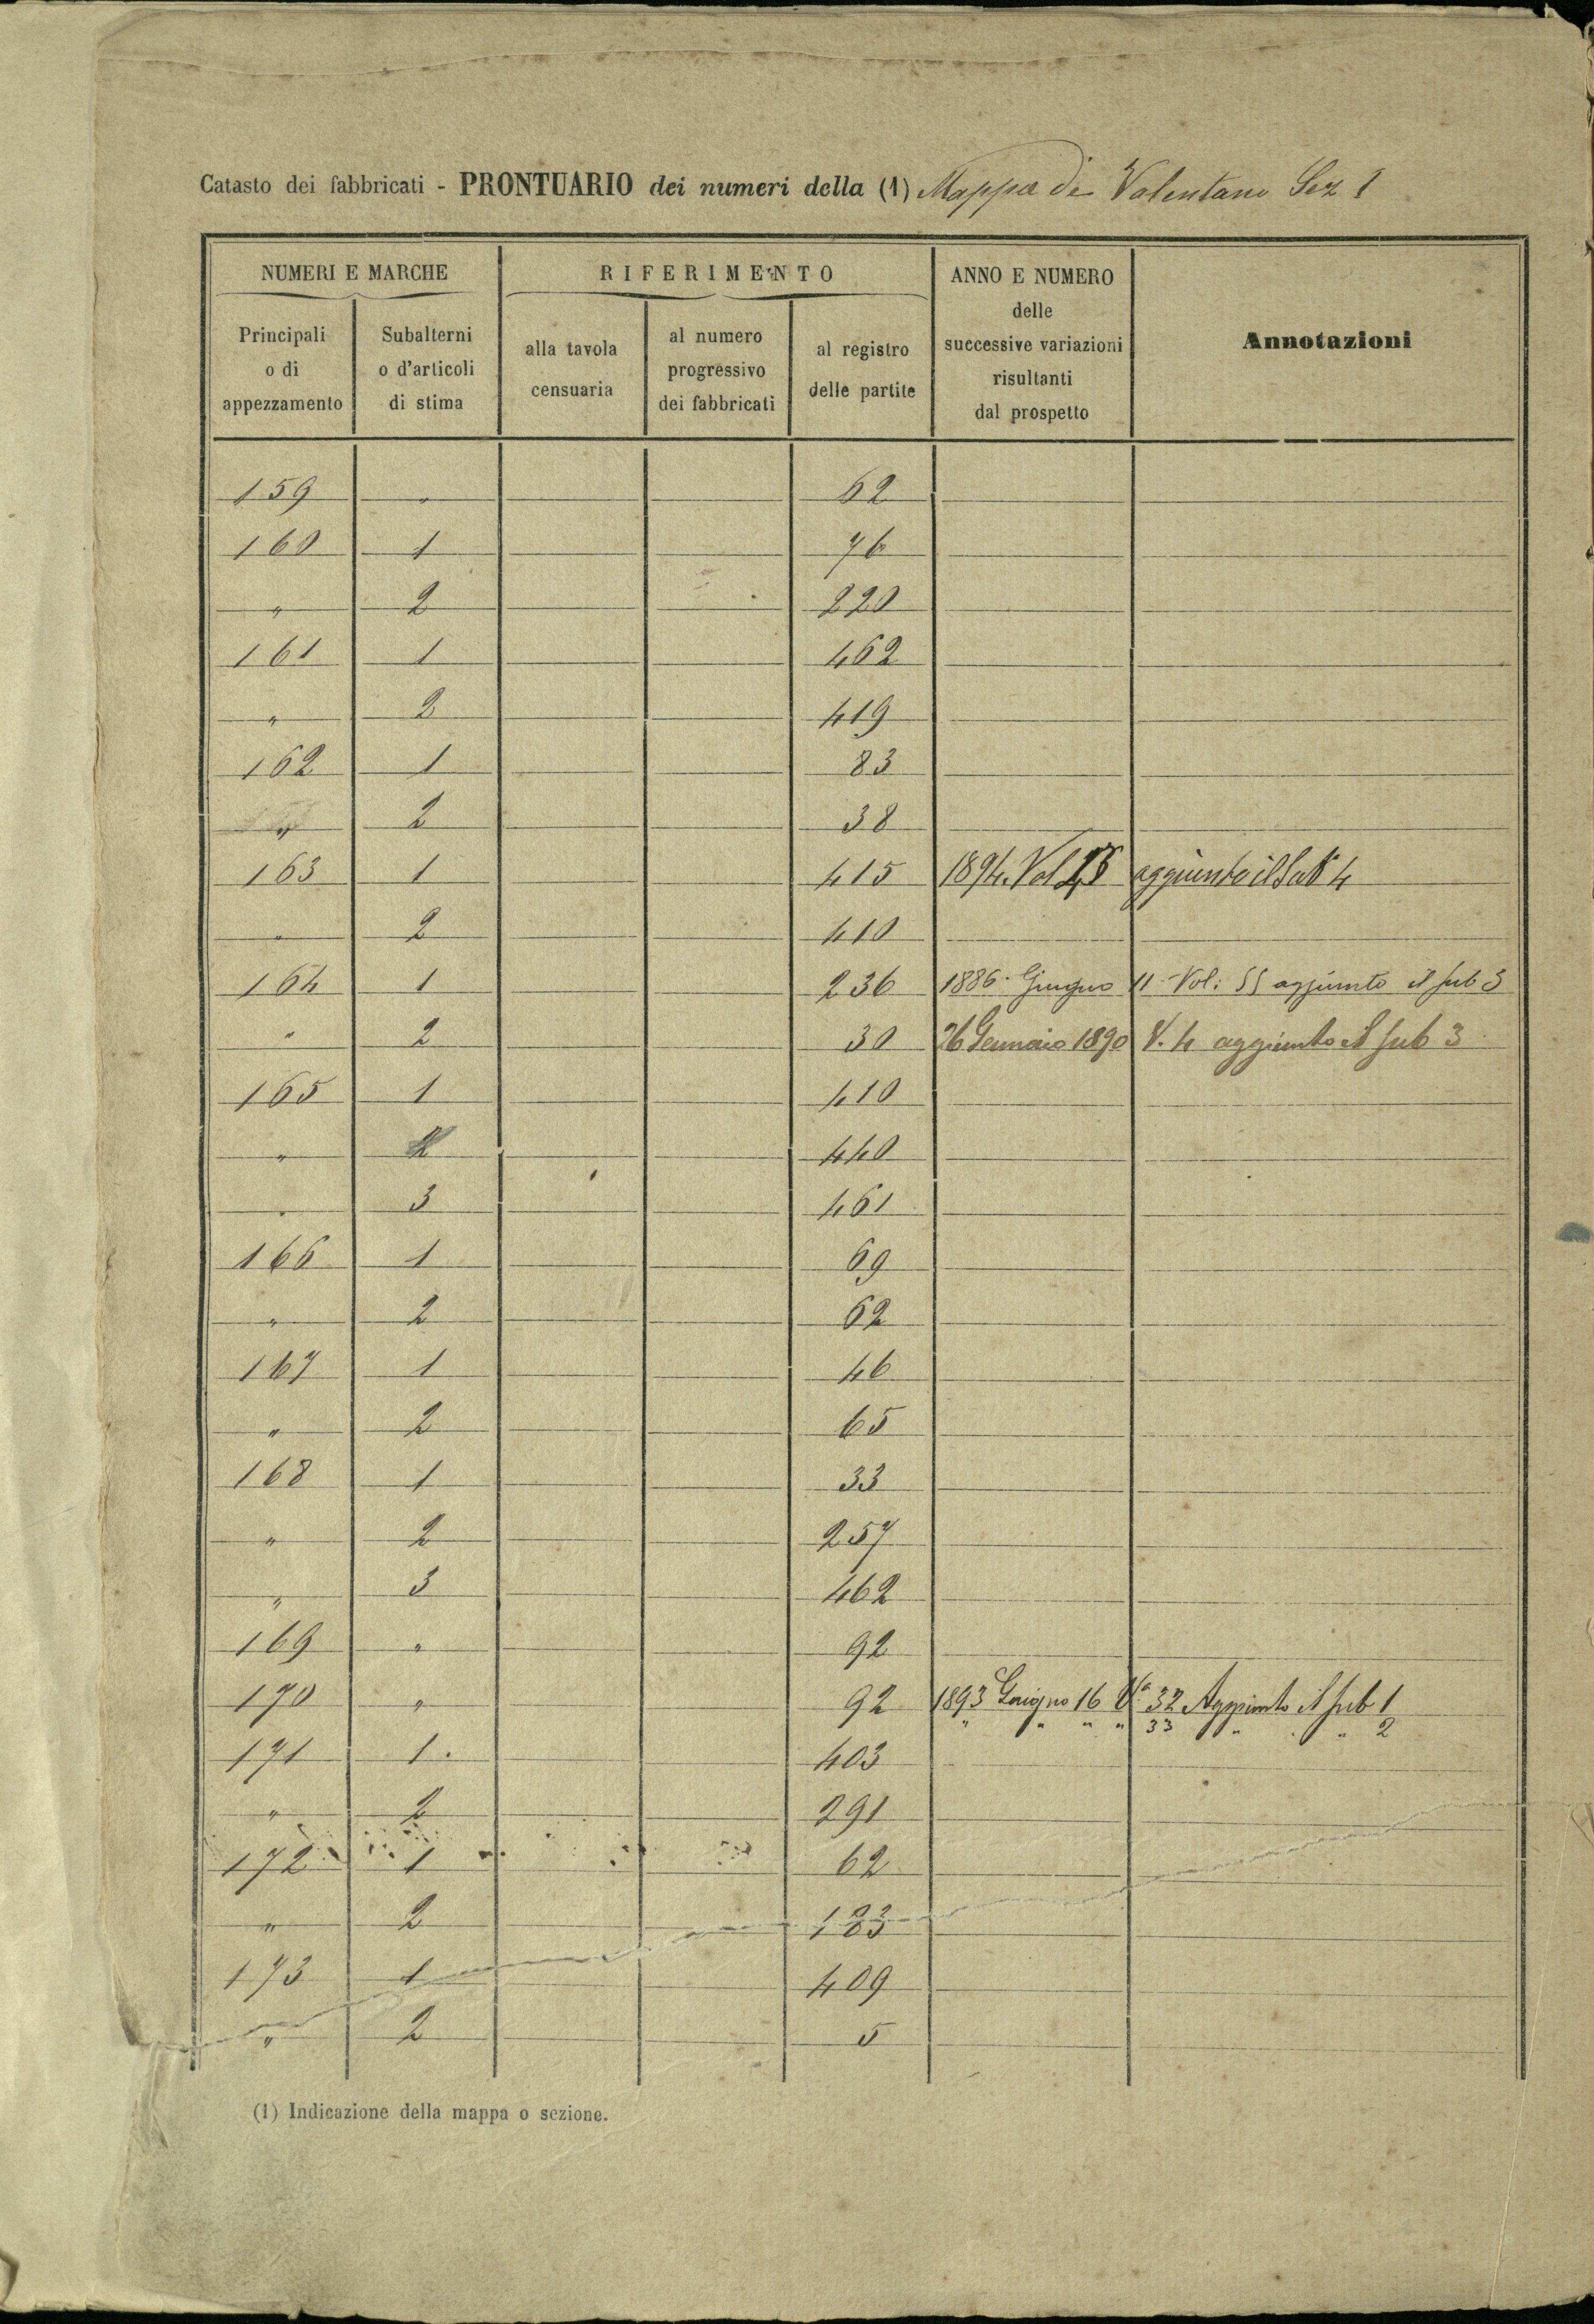 Catasto dei fabbricati - PRONTUARIO dei numeri della (1) Mappa di Valentano Sez 1
NUMERI E MARCHE RIFERIMENTO ANNO E NUMERO delle successive variazioni risultanti dal prospetto Annotazioni
Principali o di appezzamento Subalterni o d'articoli di stima alla tavola censuaria al numero progressivo dei fabbricati al registro delle partite
159 " 62
160 1 76
" 2 220
161 1 462
" 2 419
162 1 83
" 2 38
163 1 415 1894. Vol aggiunto il Sub 4
" 2 410
164 1 236 1886. Giugno 11 Vol: 55 aggiunto il sub 3
" 2 30 26 Gennaio 1890 V. 4 aggiunto il sub 3
165 1 410
" 2 440
" 3 461
166 1 69
" 2 62
167 1 46
" 2 65
168 1 33
" 2 257
" 3 462
169 " 92
170 " 92 1893 Giugno 16 Va 32 Aggiunto il sub 1
" " " " 33 " " " 2
171 1. 403
" 2 291
172 1 62
" 2 183
173 1 409
" 2 5
(1) Indicazione della mappa o sezione.